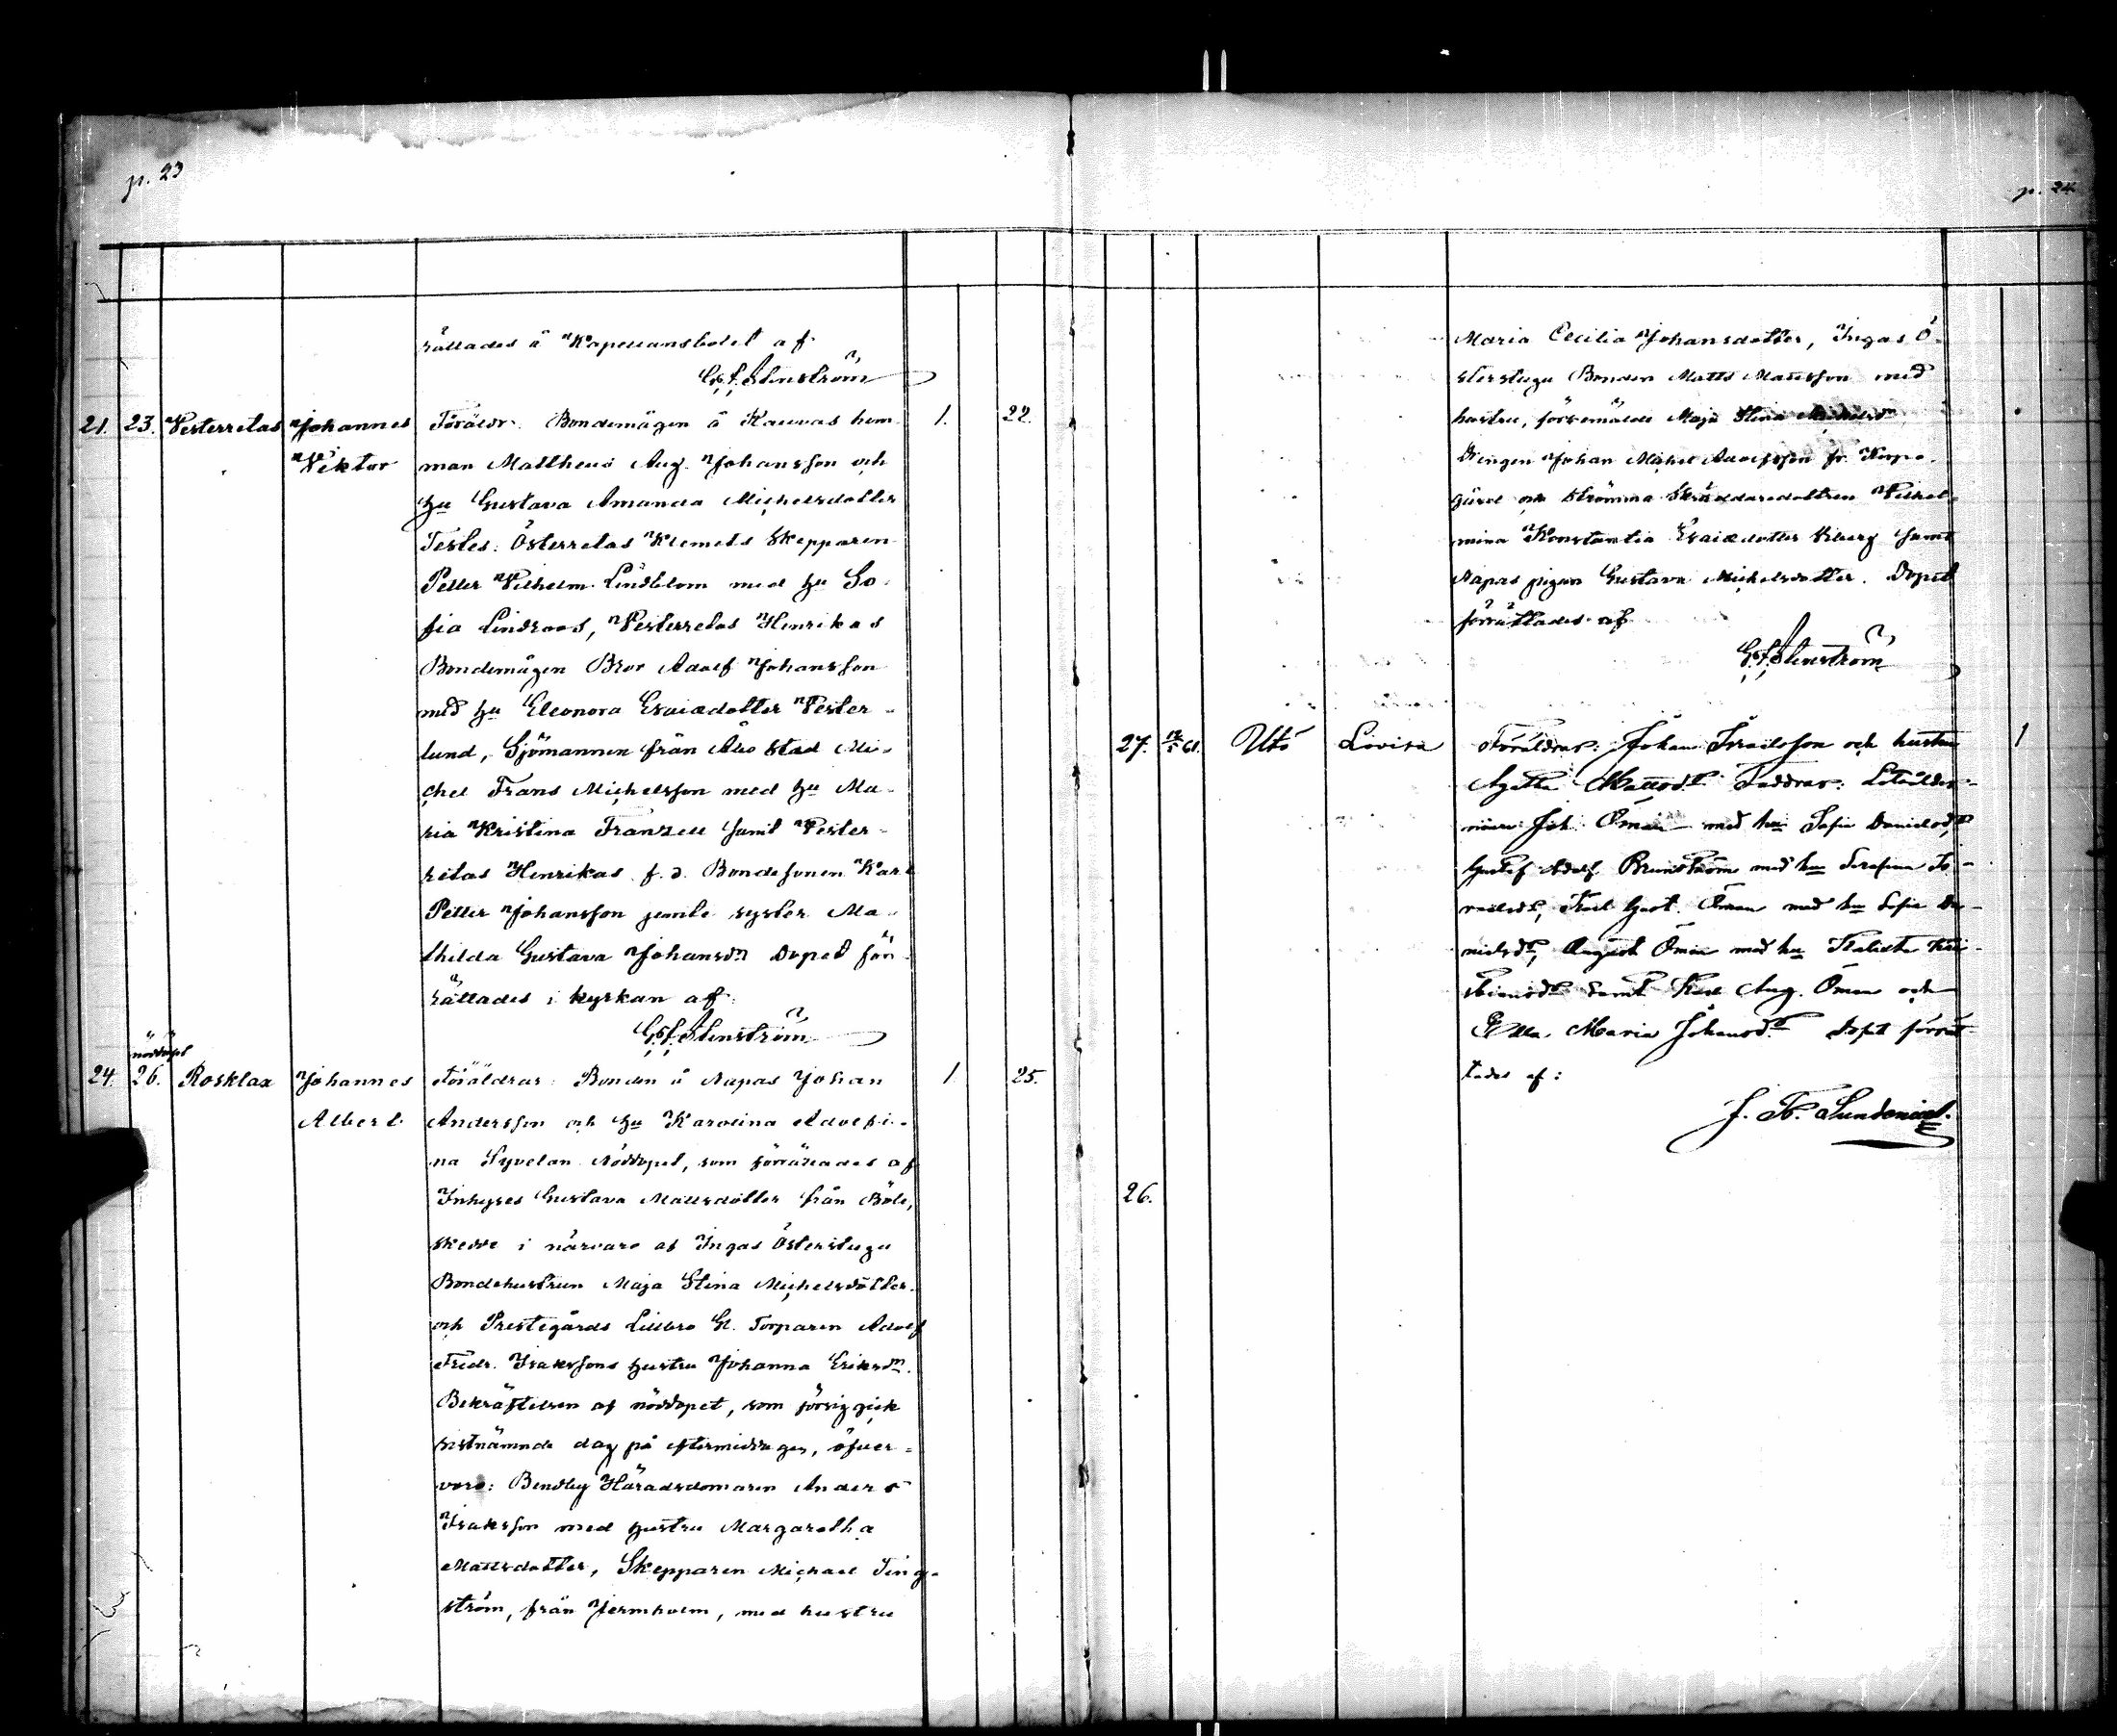 p. 23
rättades å Kapellansbolet af
G. F. Stenström
21. 23. Vesterretas Johannes Viktor 1. 22.
Föräldr. Bondemågen å Kauvas hem
man Mattheus Aug. Johansson och
hu Gustava Amanda Michelsdotter
Testes: Österretas Klemets Skepparen
Petter Vilhelm Lindblom med hu So-
fia Lindroos, Vesterretas Henrikas
Bondemågen Bror Adolf Johansson
med hu Eleonora Esaiædotter Vester-
lund, Sjömannen från Åbo stad Mi-
chel Frans Michelsson med hu Ma-
ria Kristina Franzell samt Vester-
retas Henrikas f. d. Bondesonen Karl
Petter Johansson jemte syster Ma-
thilda Gustava Johansdr Dopet för-
rättades i kyrkan af
G. F. Stenström
nöddopt
24. 26. Rosklax Johannes Albert 1 25.
Föräldrar: Bonden å Napas Johan
Andersson och hu Karolina Adolfi-
na Sjvelan Nöddopet, som förrättades af
Inhyses Gustava Mattsdotter från Böle,
skedde i närvaro af Ingas Österstugu
Bondehustrun Maja Stina Michelsdotter
och Prestegårds Lillbro Gl. Torparen Adolf
Fredr. Isakssons hustru Johanna Eriksdr.
Bekräftelsen af nöddopet, som försiggick
sistnämnde dag på eftermiddagen, öfver-
voro: Bendby Häradsdomaren Anders
Isaksson med hustru Margaretha
Mattsdotter, Skepparen Michael Ting-
ström, från Jermholm, med hustru
p. 24
Maria Cecilia Johansdotter, Ingas Ö-
sterstugu Bonden Matts Mattsson med
hustru, förbemälde Maja Stina Michelsdr
Drengen Johan Michel Adolfsson fr. Korpo
gård och Strömma Skräddaredottren Vilhel-
mina Konstantia Esaiædotter samt
Napas pigan Gustava Michelsdotter. Dopet
förrättades af
G. F. Stenström
27. 61. Utö Lovisa 1
Föräldrar: Johan Israelsson och hustru
Agatha Mattsdr. Faddrar: Lotsålder-
man Joh. Öman med hu Sofia Danielsdr,
Gustaf Adolf Brunström med hu Serafina Is-
raelsdr, Karl Gust. Öman med hu Sofia Da-
nielsdr, August Öman med hu
samt Karl Aug. Öman och
Maria Johansdr. Dopet förrät-
tades af:
J. Sundenius.
26.